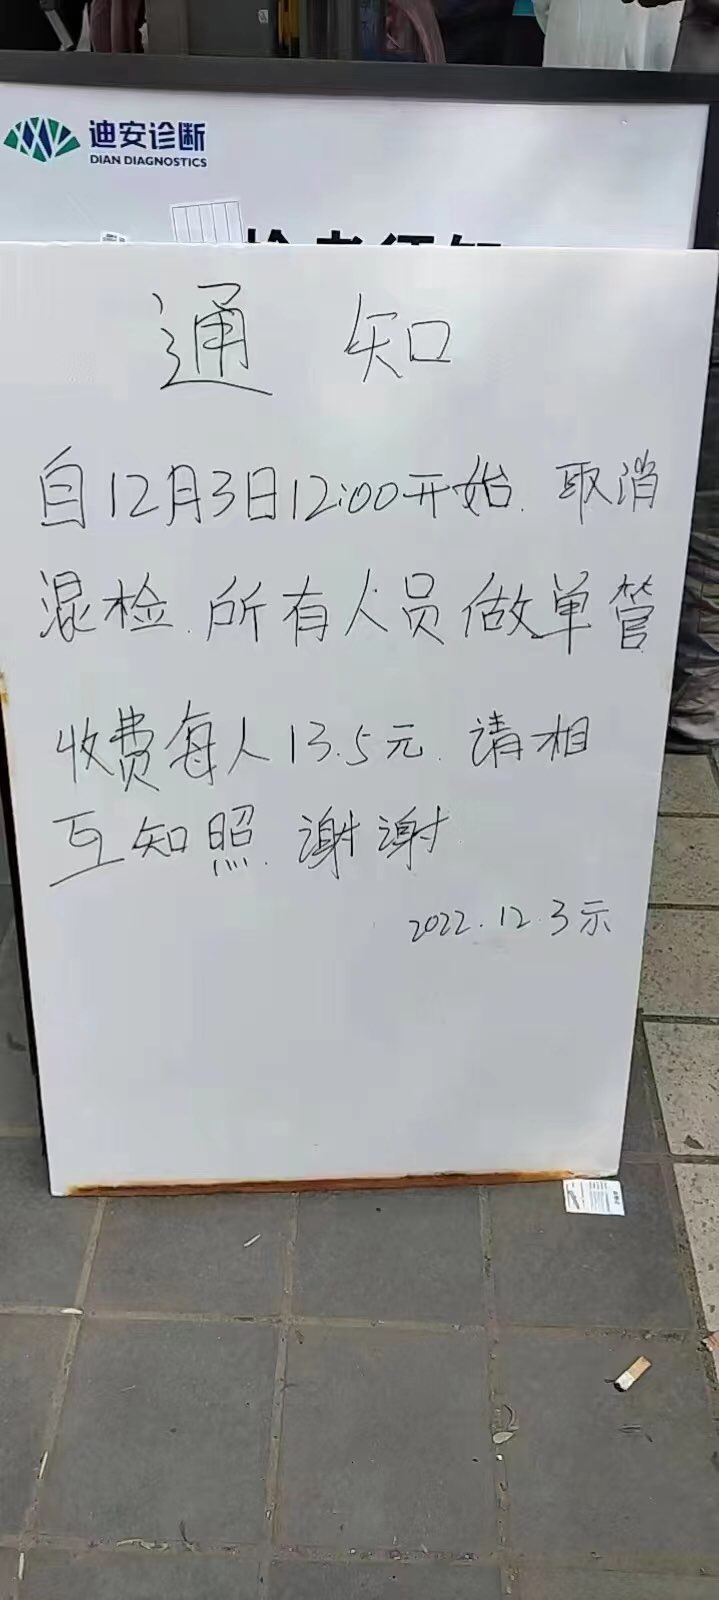 迪安诊断
DIAN DIAGNOSTICS
通知
自12月3日12:00开始.取消
混检.所有人员做单管
收费每人13.5元.请相
互知照.谢谢
2022.12.3示